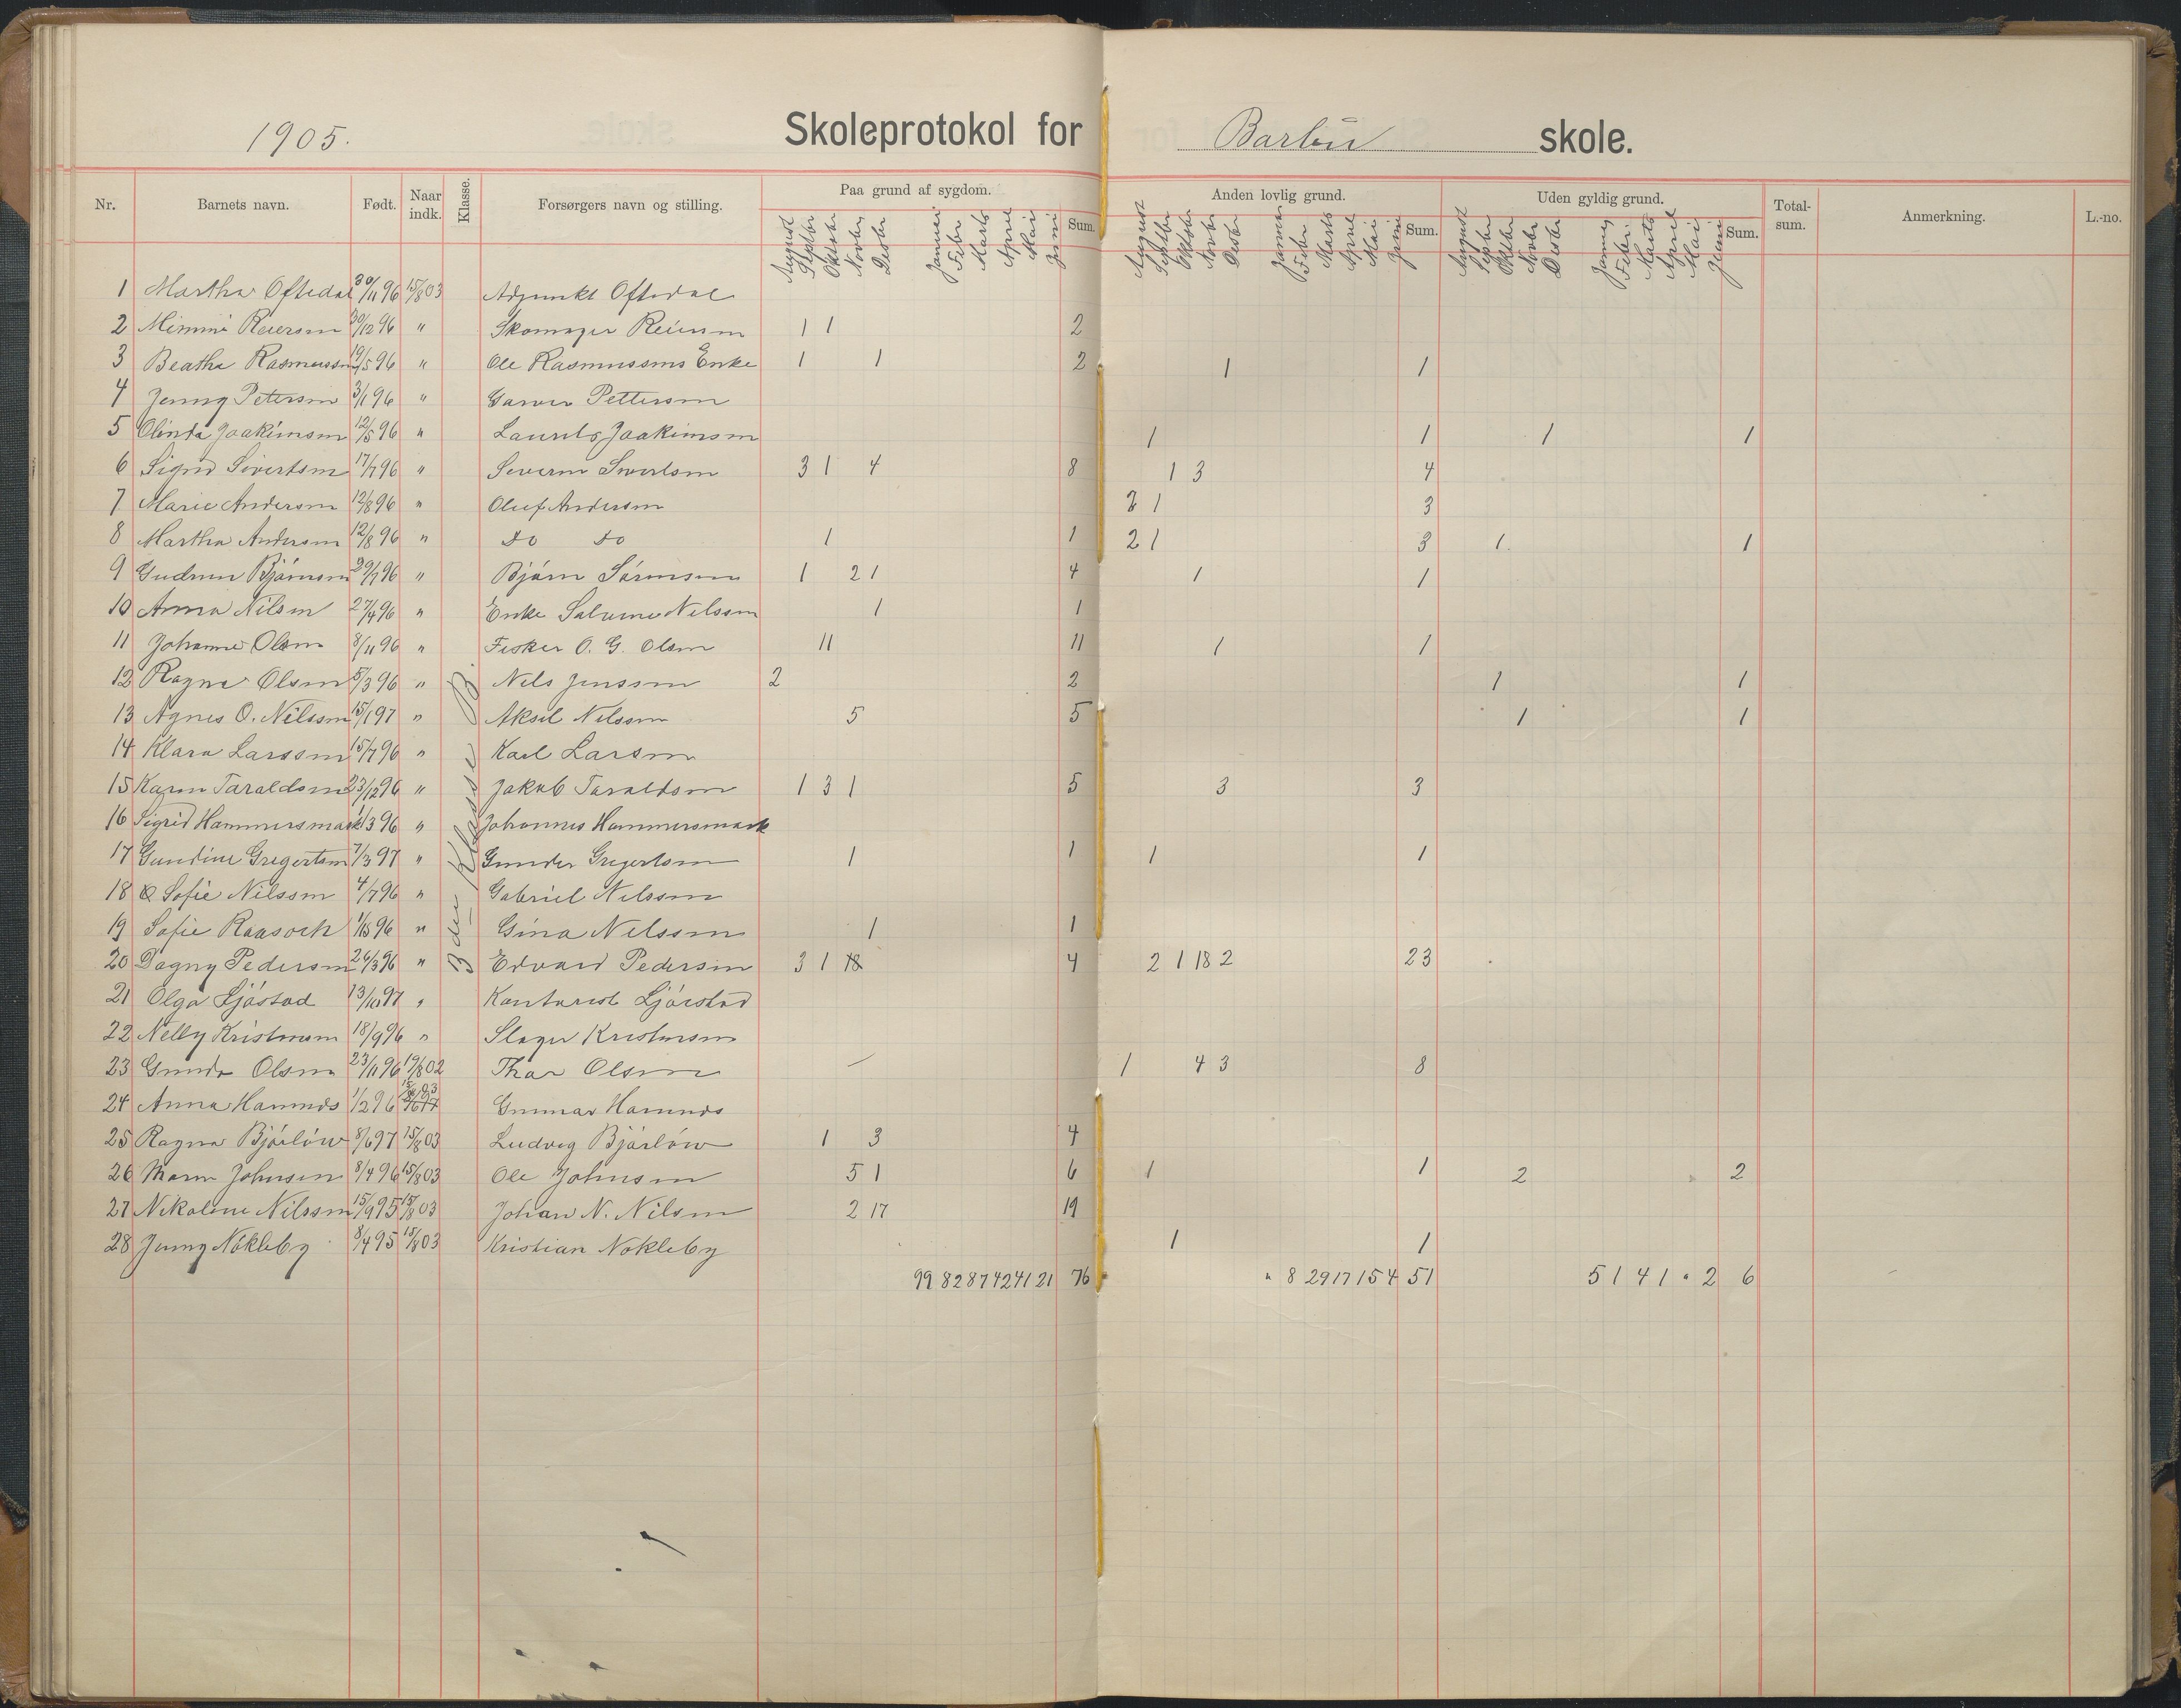 1905. Skoleprotokol for Barbu skole.
Nr. Barnets navn. Født. Naar indk. Klasse. Forsørgers navn og stilling. Paa grund af sygdom. Sum. Anden lovlig grund. Sum. Uden gyldig grund. Sum. Total-sum. Anmerkning. L.-no.
August Septbr Oktober Novbr Desbr Januar Febr Marts April Mai Juni August Septbr Oktober Novbr Desbr Januar Febr Marts April Mai Juni August Septbr Oktbr Novbr Desbr Januar Febr. Marts April Mai Juni
1 Martha Oftedal 30/11 96 15/8 03 Adjunkt Oftedal
2 Mimmi Reiersen 30/12 96 " Skomager Reiersen 1 1 2
3 Beathe Rasmussen 19/5 96 " Ole Rasmussens Enke 1 1 2 1 1
4 Jenny Petersen 3/1 96 " Garver Pettersen
5 Olinda Joakimsen 12/5 96 " Laurits Joakimsen 1 1 1 1
6 Sigrid Sivertsen 17/7 96 " Severin Sivertsen 3 1 4 8 1 3 4
7 Marie Andersen 12/8 96 " Oluf Andersen 2 1 3
8 Martha Andersen 12/8 96 " do do 1 1 2 1 3 1 1
9 Gudrun Bjørnsen 29/7 96 " Bjørn Sørensen 1 2 1 4 1 1
10 Anna Nilsen 27/4 96 " Enke Salume Nilssen 1 1
11 Johanne Olsen 8/11 96 " Fisker O. G. Olsen 11 11 1 1
12 Ragna Olsen 5/3 96 " Nils Jenssen 2 2 1 1
13 Agnes O. Nilssen 15/1 97 " Aksel Nilssen 5 5 1 1
14 Klara Larssen 15/7 96 " Karl Larsen
15 Karen Taraldsen 23/12 96 " Jakob Taraldsen 1 3 1 5 3 3
16 Sigrid Hammersmark 1/3 96 " Johannes Hammersmark
17 Gundine Gregertsen 7/3 97 " Gunder Gregertsen 1 1 1 1
18 Sofie Nilssen 4/7 96 " Gabriel Nilssen
19 Sofie Raasoch 1/5 96 " Gina Nilssen 1 1
20 Dagny Pedersen 26/3 96 " Edvard Pedersen 3 1 18 4 2 1 18 2 23
3die Klasse B.
21 Olga Ljøstad 13/10 97 " Kontorist Ljøstad
22 Nelly Kristensen 18/9 96 " Slager Kristensen
23 Gunda Olsen 23/11 96 19/8 02 Thor Olsen 1 4 3 8
24 Anna Hamnds 1/2 96 Gunnar Hamnds
25 Ragna Bjørløw 8/6 97 15/8 03 Ludvig Bjørløw 1 3 4
26 Maren Johnsen 8/4 96 15/8 03 Ole Johnsen 5 1 6 1 1 2 2
27 Nikoline Nilssen 15/9 95 15/8 03 Johan N. Nilsen 2 17 19
28 Jenny Nøkleby 8/4 95 15/8 03 Kristian Nøkleby 1 1
99 82 87 42 41 21 76 " 8 29 17 15 4 51 5 1 4 1 " 2 6